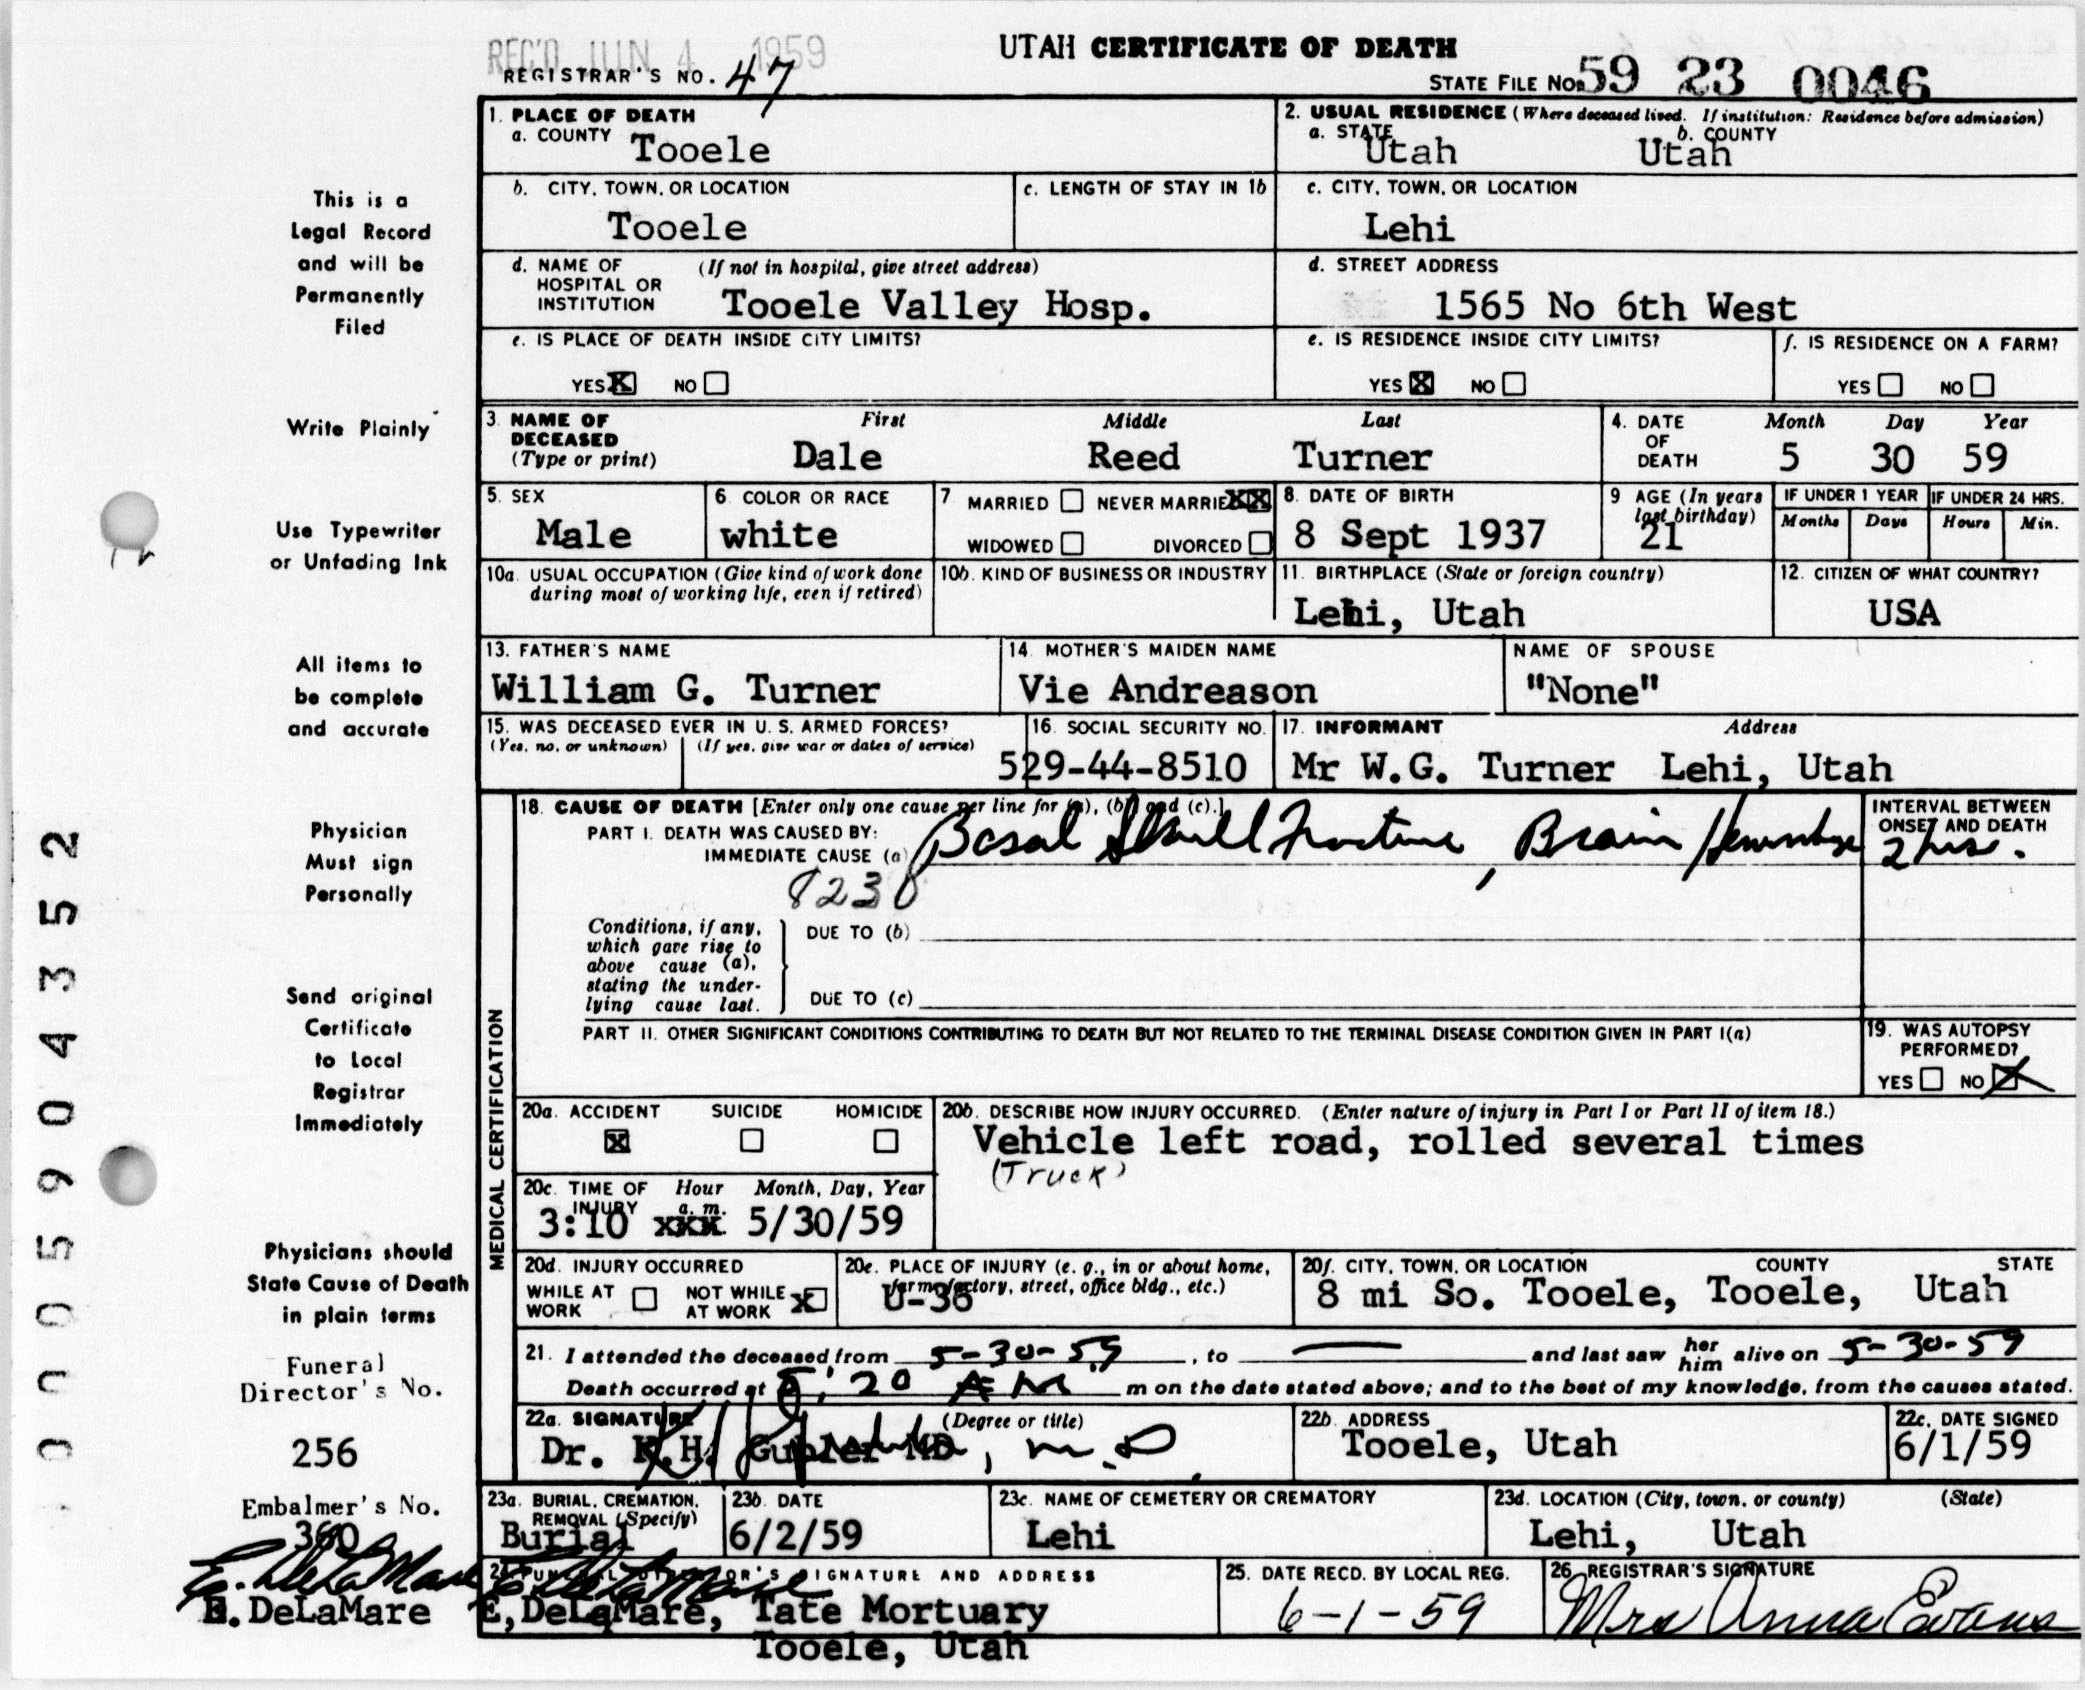 REC'D JUN 4 1959
UTAH CERTIFICATE OF DEATH
REGISTRAR'S NO. 47
STATE FILE NO. 59 23 0046
1. PLACE OF DEATH
a. COUNTY Tooele
2. USUAL RESIDENCE (Where deceased lived. If institution: Residence before admission)
a. STATE Utah b. COUNTY Utah
b. CITY, TOWN, OR LOCATION Tooele
c. LENGTH OF STAY IN 1b
c. CITY, TOWN, OR LOCATION Lehi
d. NAME OF HOSPITAL OR INSTITUTION (If not in hospital, give street address)
Tooele Valley Hosp.
d. STREET ADDRESS
1565 No 6th West
e. IS PLACE OF DEATH INSIDE CITY LIMITS?
YES X NO
e. IS RESIDENCE INSIDE CITY LIMITS?
YES X NO
f. IS RESIDENCE ON A FARM?
YES NO
3. NAME OF DECEASED (Type or print)
First Middle Last
Dale Reed Turner
4. DATE OF DEATH
Month Day Year
5 30 59
5. SEX Male
6. COLOR OR RACE white
7 MARRIED NEVER MARRIED XX
WIDOWED DIVORCED
8. DATE OF BIRTH
8 Sept 1937
9 AGE (In years last birthday)
21
IF UNDER 1 YEAR IF UNDER 24 HRS.
Months Days Hours Min.
10a. USUAL OCCUPATION (Give kind of work done during most of working life, even if retired)
10b. KIND OF BUSINESS OR INDUSTRY
11. BIRTHPLACE (State or foreign country)
Lehi, Utah
12. CITIZEN OF WHAT COUNTRY?
USA
13. FATHER'S NAME
William G. Turner
14. MOTHER'S MAIDEN NAME
Vie Andreason
NAME OF SPOUSE
"None"
15. WAS DECEASED EVER IN U. S. ARMED FORCES?
(Yes, no, or unknown) (If yes, give war or dates of service)
16. SOCIAL SECURITY NO.
529-44-8510
17. INFORMANT Address
Mr W.G. Turner Lehi, Utah
MEDICAL CERTIFICATION
18. CAUSE OF DEATH [Enter only one cause per line for (a), (b), and (c).]
PART I. DEATH WAS CAUSED BY:
IMMEDIATE CAUSE (a) Basal Skull Fracture, Brain Hemorrhage
8230
INTERVAL BETWEEN ONSET AND DEATH
2 hrs.
Conditions, if any, which gave rise to above cause (a), stating the underlying cause last.
DUE TO (b)
DUE TO (c)
PART II. OTHER SIGNIFICANT CONDITIONS CONTRIBUTING TO DEATH BUT NOT RELATED TO THE TERMINAL DISEASE CONDITION GIVEN IN PART I(a)
19. WAS AUTOPSY PERFORMED?
YES NO X
20a. ACCIDENT SUICIDE HOMICIDE
X
20b. DESCRIBE HOW INJURY OCCURRED. (Enter nature of injury in Part I or Part II of item 18.)
Vehicle left road, rolled several times
(Truck)
20c. TIME OF INJURY Hour Month, Day, Year
a. m.
3:10 xxx 5/30/59
20d. INJURY OCCURRED
WHILE AT WORK NOT WHILE AT WORK X
20e. PLACE OF INJURY (e. g., in or about home, farm, factory, street, office bldg., etc.)
U-36
20f. CITY, TOWN, OR LOCATION COUNTY STATE
8 mi So. Tooele, Tooele, Utah
21. I attended the deceased from 5-30-59, to — and last saw her him alive on 5-30-59
Death occurred at 5:20 AM m on the date stated above; and to the best of my knowledge, from the causes stated.
22a. SIGNATURE (Degree or title)
Dr. K.H. Gubler MD, M.D.
22b. ADDRESS
Tooele, Utah
22c. DATE SIGNED
6/1/59
23a. BURIAL, CREMATION, REMOVAL (Specify)
Burial
23b. DATE
6/2/59
23c. NAME OF CEMETERY OR CREMATORY
Lehi
23d. LOCATION (City, town, or county) (State)
Lehi, Utah
24. FUNERAL DIRECTOR'S SIGNATURE AND ADDRESS
E. DeLaMare
E, DeLaMare, Tate Mortuary
Tooele, Utah
25. DATE RECD. BY LOCAL REG.
6-1-59
26. REGISTRAR'S SIGNATURE
Mrs Anna Evans
This is a
Legal Record
and will be
Permanently
Filed
Write Plainly
Use Typewriter
or Unfading Ink
All items to
be complete
and accurate
Physician
Must sign
Personally
Send original
Certificate
to Local
Registrar
Immediately
Physicians should
State Cause of Death
in plain terms
Funeral
Director's No.
256
Embalmer's No.
360
E. DeLaMare
E. DeLaMare
0005904352